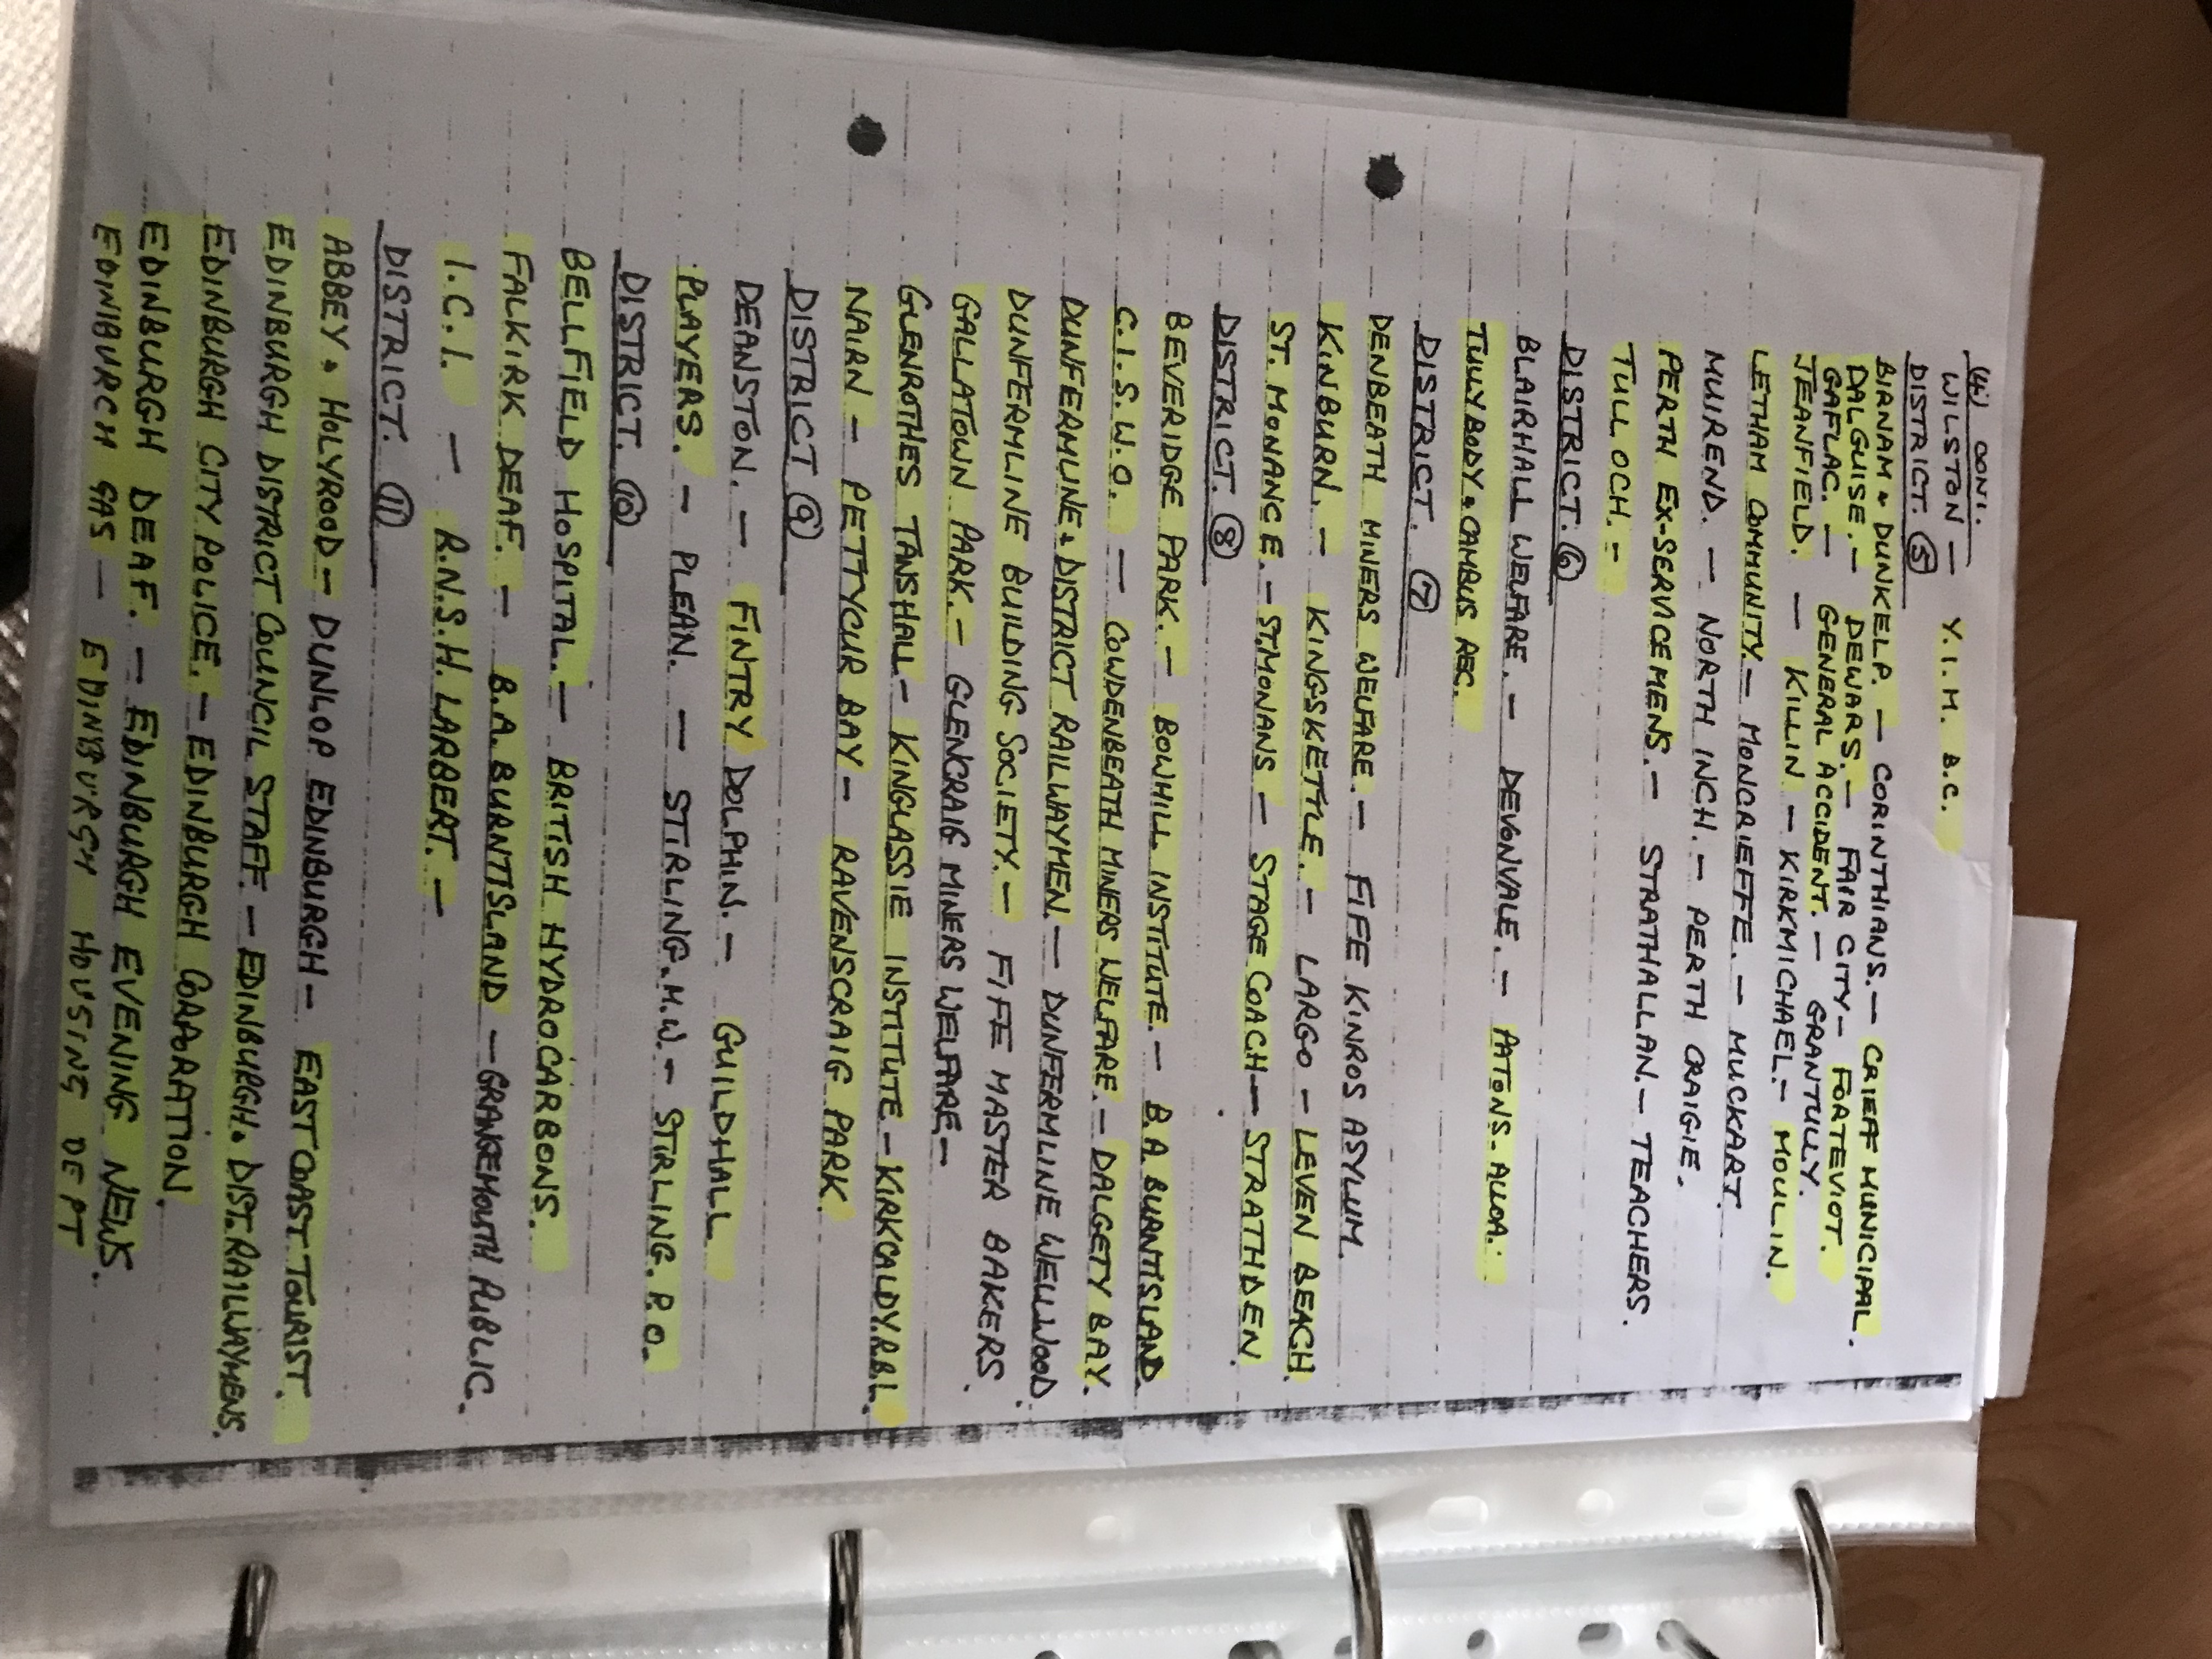 (4) CONT.
WILSTON — Y.I.M. B.C.
DISTRICT. 5
BIRNAM & DUNKELD. — CORINTHIANS. — CRIEFF MUNICIPAL.
DALGUISE. — DEWARS. — FAIR CITY — FORTEVIOT.
GAFLAC. — GENERAL ACCIDENT. — GRANTULLY.
JEANFIELD. — KILLIN — KIRKMICHAEL. — MOULIN.
LETHAM COMMUNITY. — MONCRIEFFE. — MUCKART.
MUIREND. — NORTH INCH. — PERTH CRAIGIE.
PERTH EX-SERVICEMENS. — STRATHALLAN. — TEACHERS.
TULLOCH. —
DISTRICT. 6
BLAIRHALL WELFARE. — DEVONVALE. — PATONS. ALLOA.
TULLYBODY & CAMBUS REC.
DISTRICT. 7
DENBEATH MINERS WELFARE. — FIFE KINROS ASYLUM.
KINBURN. — KINGSKETTLE. — LARGO — LEVEN BEACH.
ST. MONANCE. — ST. MONANS — STAGE COACH — STRATHDEN.
DISTRICT. 8
BEVERIDGE PARK. — BOWHILL INSTITUTE. — B.A. BURNTISLAND.
C.I.S.W.O. — COWDENBEATH MINERS WELFARE. — DALGETY BAY.
DUNFERMLINE & DISTRICT RAILWAYMEN. — DUNFERMLINE WELLWOOD.
DUNFERMLINE BUILDING SOCIETY. — FIFE MASTER BAKERS.
GALLATOWN PARK. — GLENCRAIG MINERS WELFARE —
GLENROTHES TANSHALL — KINGLASSIE INSTITUTE — KIRKCALDY. R.B.L.
NAIRN — PETTYCUR BAY — RAVENSCRAIG PARK.
DISTRICT 9
DEANSTON. — FINTRY DOLPHIN. — GUILDHALL
PLAYERS. — PLEAN. — STIRLING. M.W. — STIRLING. P.O.
DISTRICT. 10
BELLFIELD HOSPITAL. — BRITISH HYDROCARBONS.
FALKIRK DEAF. — B.A. BURNTISLAND — GRANGEMOUTH PUBLIC.
I.C.I. — R.N.S.H. LARBERT. —
DISTRICT. 11
ABBEY & HOLYROOD — DUNLOP EDINBURGH — EAST COAST TOURIST.
EDINBURGH DISTRICT COUNCIL STAFF. — EDINBURGH & DIST. RAILWAYMENS.
EDINBURGH CITY POLICE. — EDINBURGH CORPORATION.
EDINBURGH DEAF. — EDINBURGH EVENING NEWS.
EDINBURGH GAS — EDINBURGH HOUSING DEPT